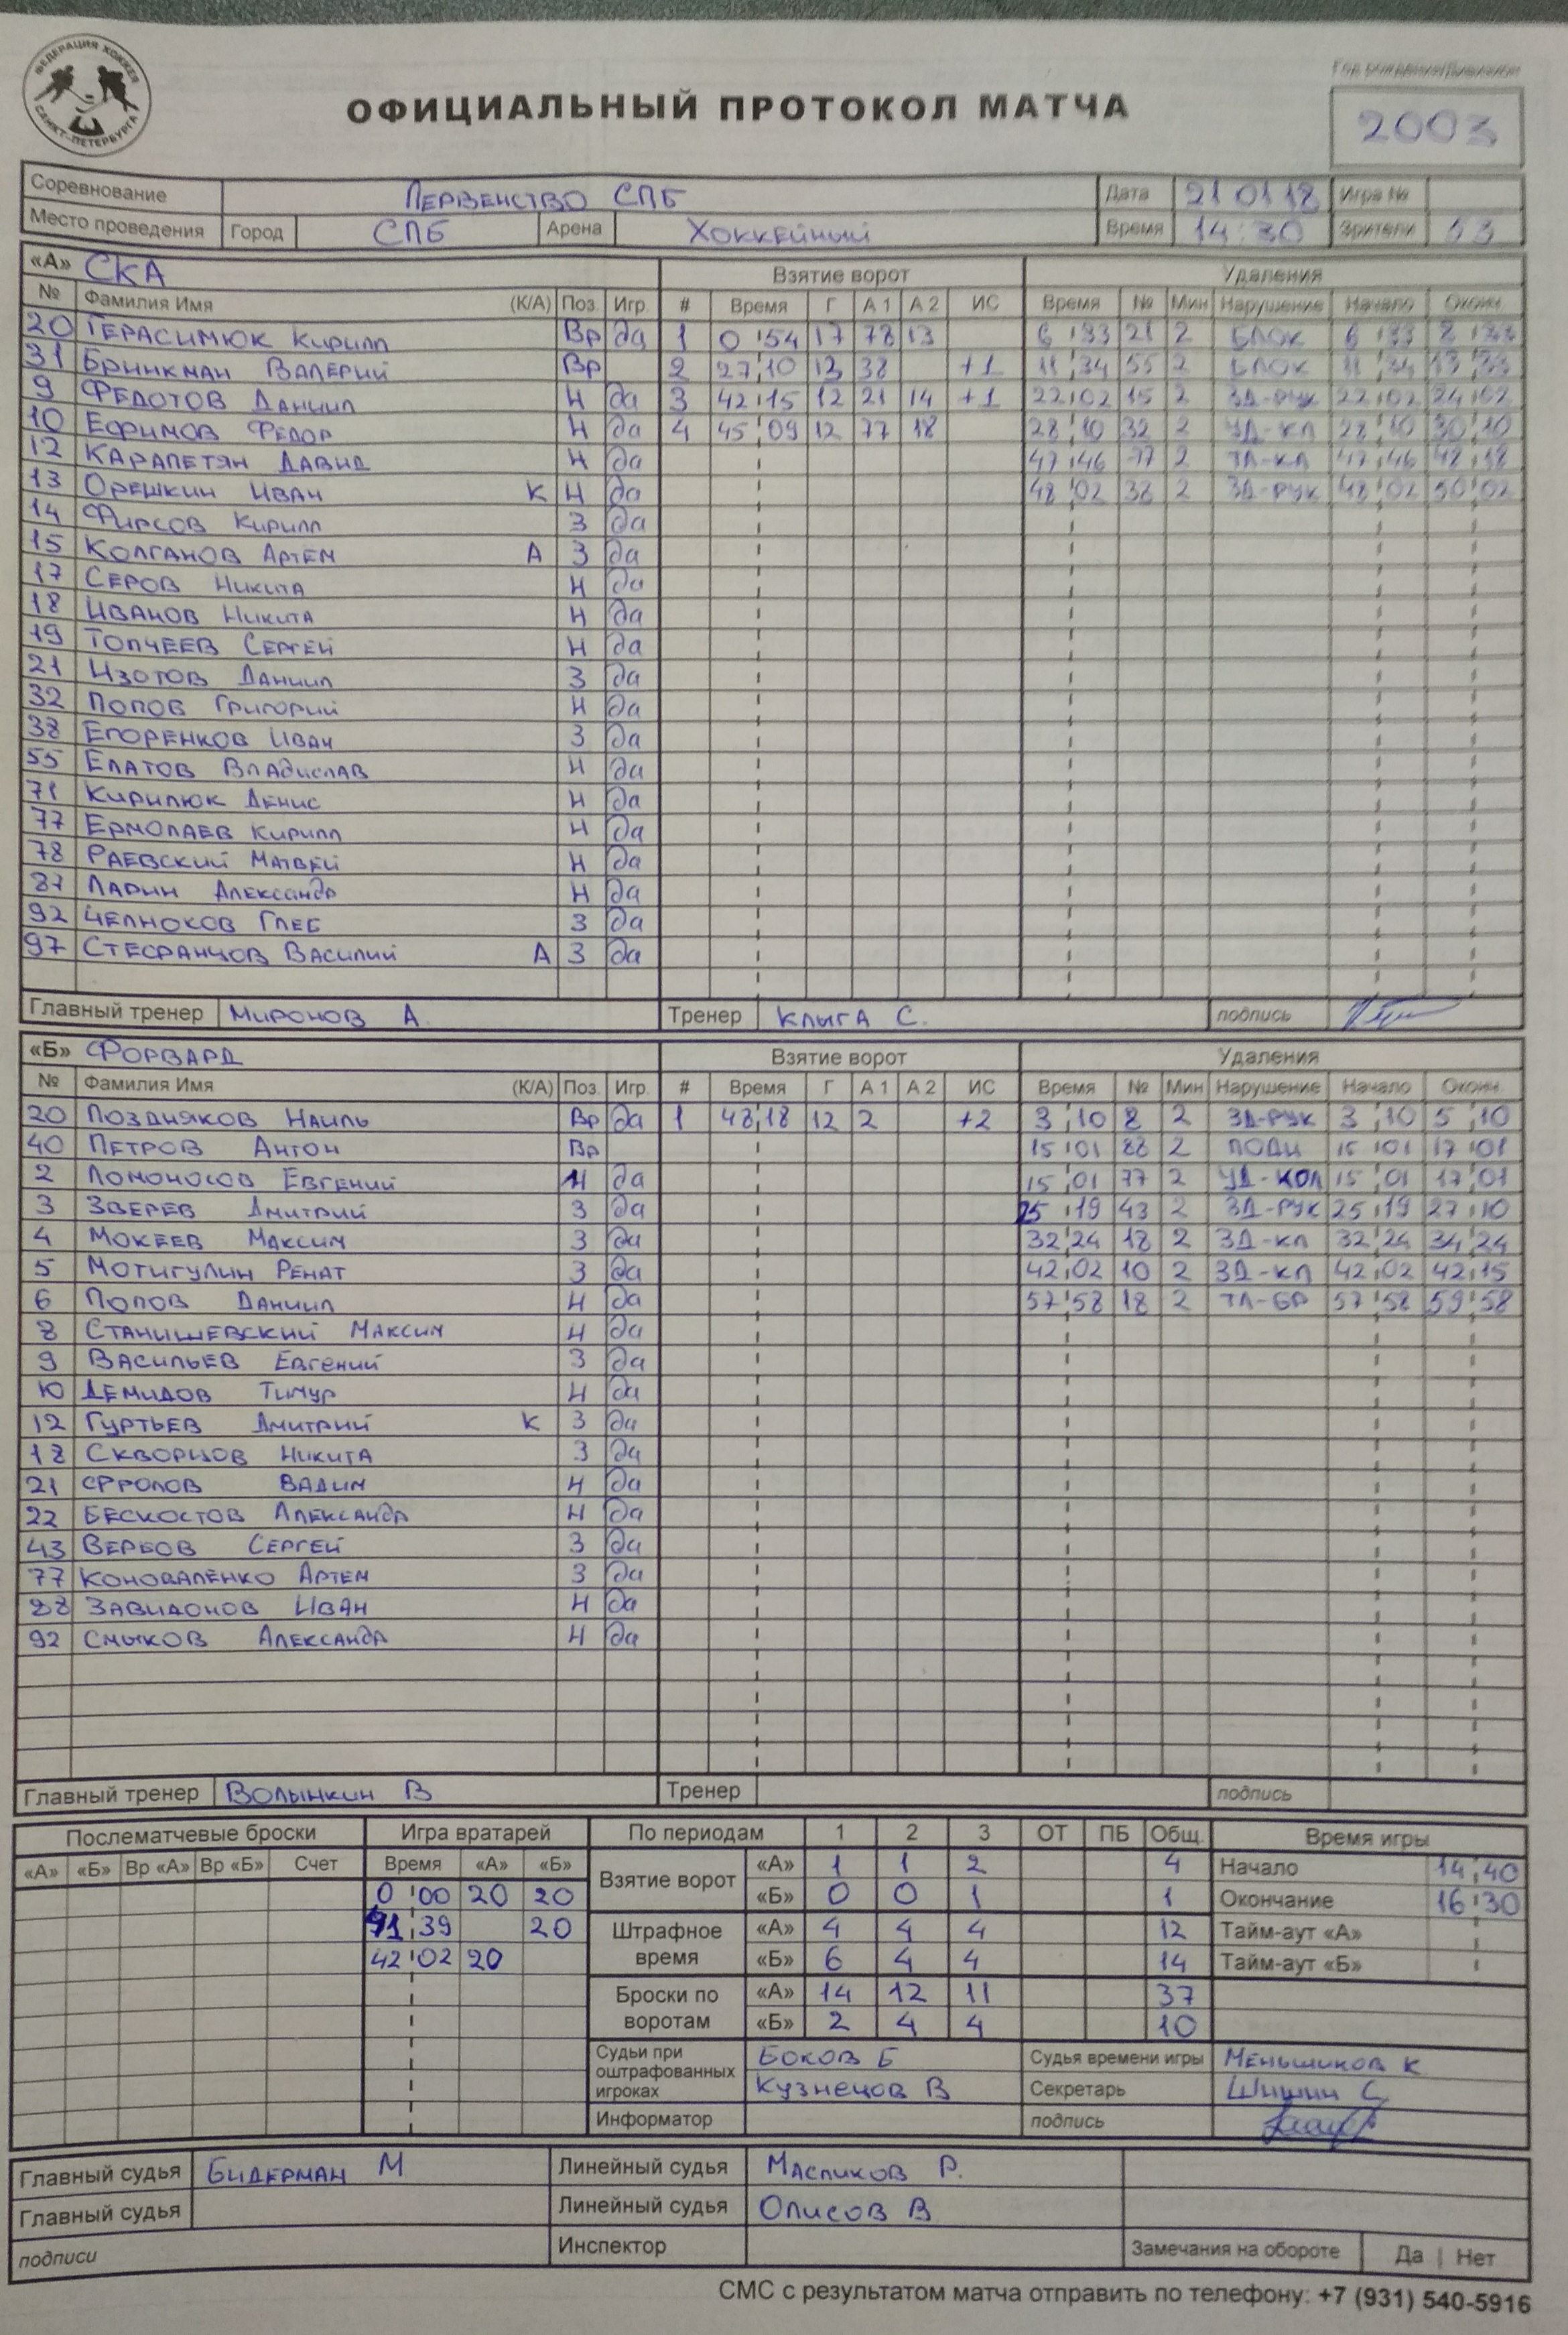 ФЕДЕРАЦИЯ ХОККЕЯ САНКТ-ПЕТЕРБУРГА
Год рождения/Дивизион
ОФИЦИАЛЬНЫЙ ПРОТОКОЛ МАТЧА
2003
Соревнование ПЕРВЕНСТВО СПБ Дата 21 01 18 Игра №
Место проведения Город СПБ Арена ХОККЕЙНЫЙ Время 14:30 Зрители 53
«А» СКА Взятие ворот Удаления
№ Фамилия Имя (К/А) Поз. Игр. # Время Г А 1 А 2 ИС Время № Мин Нарушение Начало Оконч.
20 ГЕРАСИМЮК КИРИЛЛ Вр да 1 0:54 17 78 13 6:33 21 2 БЛОК 6:33 8:33
31 БРИНКМАН ВАЛЕРИЙ Вр 2 27:10 13 38 +1 11:34 55 2 БЛОК 11:34
9 ФЕДОТОВ ДАНИИЛ Н да 3 42:15 12 21 14 +1 22:02 15 2 ЗД-РУК 22:02 24:02
10 ЕФИМОВ ФЕДОР Н да 4 45:09 12 77 18 28:10 32 2 УД-КЛ 28:10 30:10
12 КАРАПЕТЯН ДАВИД Н да 47:46 77 2 ТЛ-КЛ 47:46 48:18
13 ОРЕШКИН ИВАН К Н да 48:02 38 2 ЗД-РУК 48:02 50:02
14 ФИРСОВ КИРИЛЛ З да
15 КОЛГАНОВ АРТЕМ А З да
17 СЕРОВ НИКИТА Н да
18 ИВАНОВ НИКИТА Н да
19 ТОПЧЕЕВ СЕРГЕЙ Н да
21 ИЗОТОВ ДАНИИЛ З да
32 ПОПОВ ГРИГОРИЙ Н да
38 ЕГОРЕНКОВ ИВАН З да
55 ЕЛАТОВ ВЛАДИСЛАВ Н да
71 КИРИЛЮК ДЕНИС Н да
77 ЕРМОЛАЕВ КИРИЛЛ Н да
78 РАЕВСКИЙ МАТВЕЙ Н да
87 ЛАРИН АЛЕКСАНДР Н да
92 ЧЕЛНОКОВ ГЛЕБ З да
97 СТЕФАНЦОВ ВАСИЛИЙ А З да
Главный тренер МИРОНОВ А. Тренер КЛЫГА С. подпись
«Б» ФОРВАРД Взятие ворот Удаления
№ Фамилия Имя (К/А) Поз. Игр. # Время Г А 1 А 2 ИС Время № Мин Нарушение Начало Оконч.
20 ПОЗДНЯКОВ НАИЛЬ Вр да 1 48:18 12 2 +2 3:10 8 2 ЗД-РУК 3:10 5:10
40 ПЕТРОВ АНТОН Вр 15:01 88 2 ПОДН 15:01 17:01
2 ЛОМОНОСОВ ЕВГЕНИЙ Н да 15:01 77 2 УД-КОЛ 15:01 17:01
3 ЗВЕРЕВ ДМИТРИЙ З да 25:19 43 2 ЗД-РУК 25:19 27:10
4 МОКЕЕВ МАКСИМ З да 32:24 18 2 ЗД-КЛ 32:24 34:24
5 МОТИГУЛИН РЕНАТ З да 42:02 10 2 ЗД-КЛ 42:02 42:15
6 ПОПОВ ДАНИИЛ Н да 57:58 18 2 ТЛ-БР 57:58 59:58
8 СТАНИШЕВСКИЙ МАКСИМ Н да
9 ВАСИЛЬЕВ ЕВГЕНИЙ З да
10 ДЕМИДОВ ТИМУР Н да
12 ГУРТЬЕВ ДМИТРИЙ К З да
18 СКВОРЦОВ НИКИТА З да
21 ФРОЛОВ ВАДИМ Н да
22 БЕСКОСТОВ АЛЕКСАНДР Н да
43 ВЕРБОВ СЕРГЕЙ З да
77 КОНОВАЛЕНКО АРТЕМ З да
88 ЗАВИДОНОВ ИВАН Н да
92 СМЫКОВ АЛЕКСАНДР Н да
Главный тренер ВОЛЫНКИН В Тренер подпись
Послематчевые броски Игра вратарей По периодам 1 2 3 ОТ ПБ Общ. Время игры
«А» «Б» Вр «А» Вр «Б» Счет Время «А» «Б» Взятие ворот «А» 1 1 2 4 Начало 14:40
0:00 20 20 «Б» 0 0 1 1 Окончание 16:30
:39 20 Штрафное время «А» 4 4 4 12 Тайм-аут «А»
42:02 20 «Б» 6 4 4 14 Тайм-аут «Б»
Броски по воротам «А» 14 12 11 37
«Б» 2 4 4 10
Судьи при оштрафованных игроках БОКОВ Б Судья времени игры МЕНЬШИКОВ К
КУЗНЕЦОВ В Секретарь ШИШИН С
Информатор подпись
Главный судья БИДЕРМАН М Линейный судья МАСЛИКОВ Р.
Главный судья Линейный судья ОЛИСОВ В
подписи Инспектор Замечания на обороте Да | Нет
СМС с результатом матча отправить по телефону: +7 (931) 540-5916